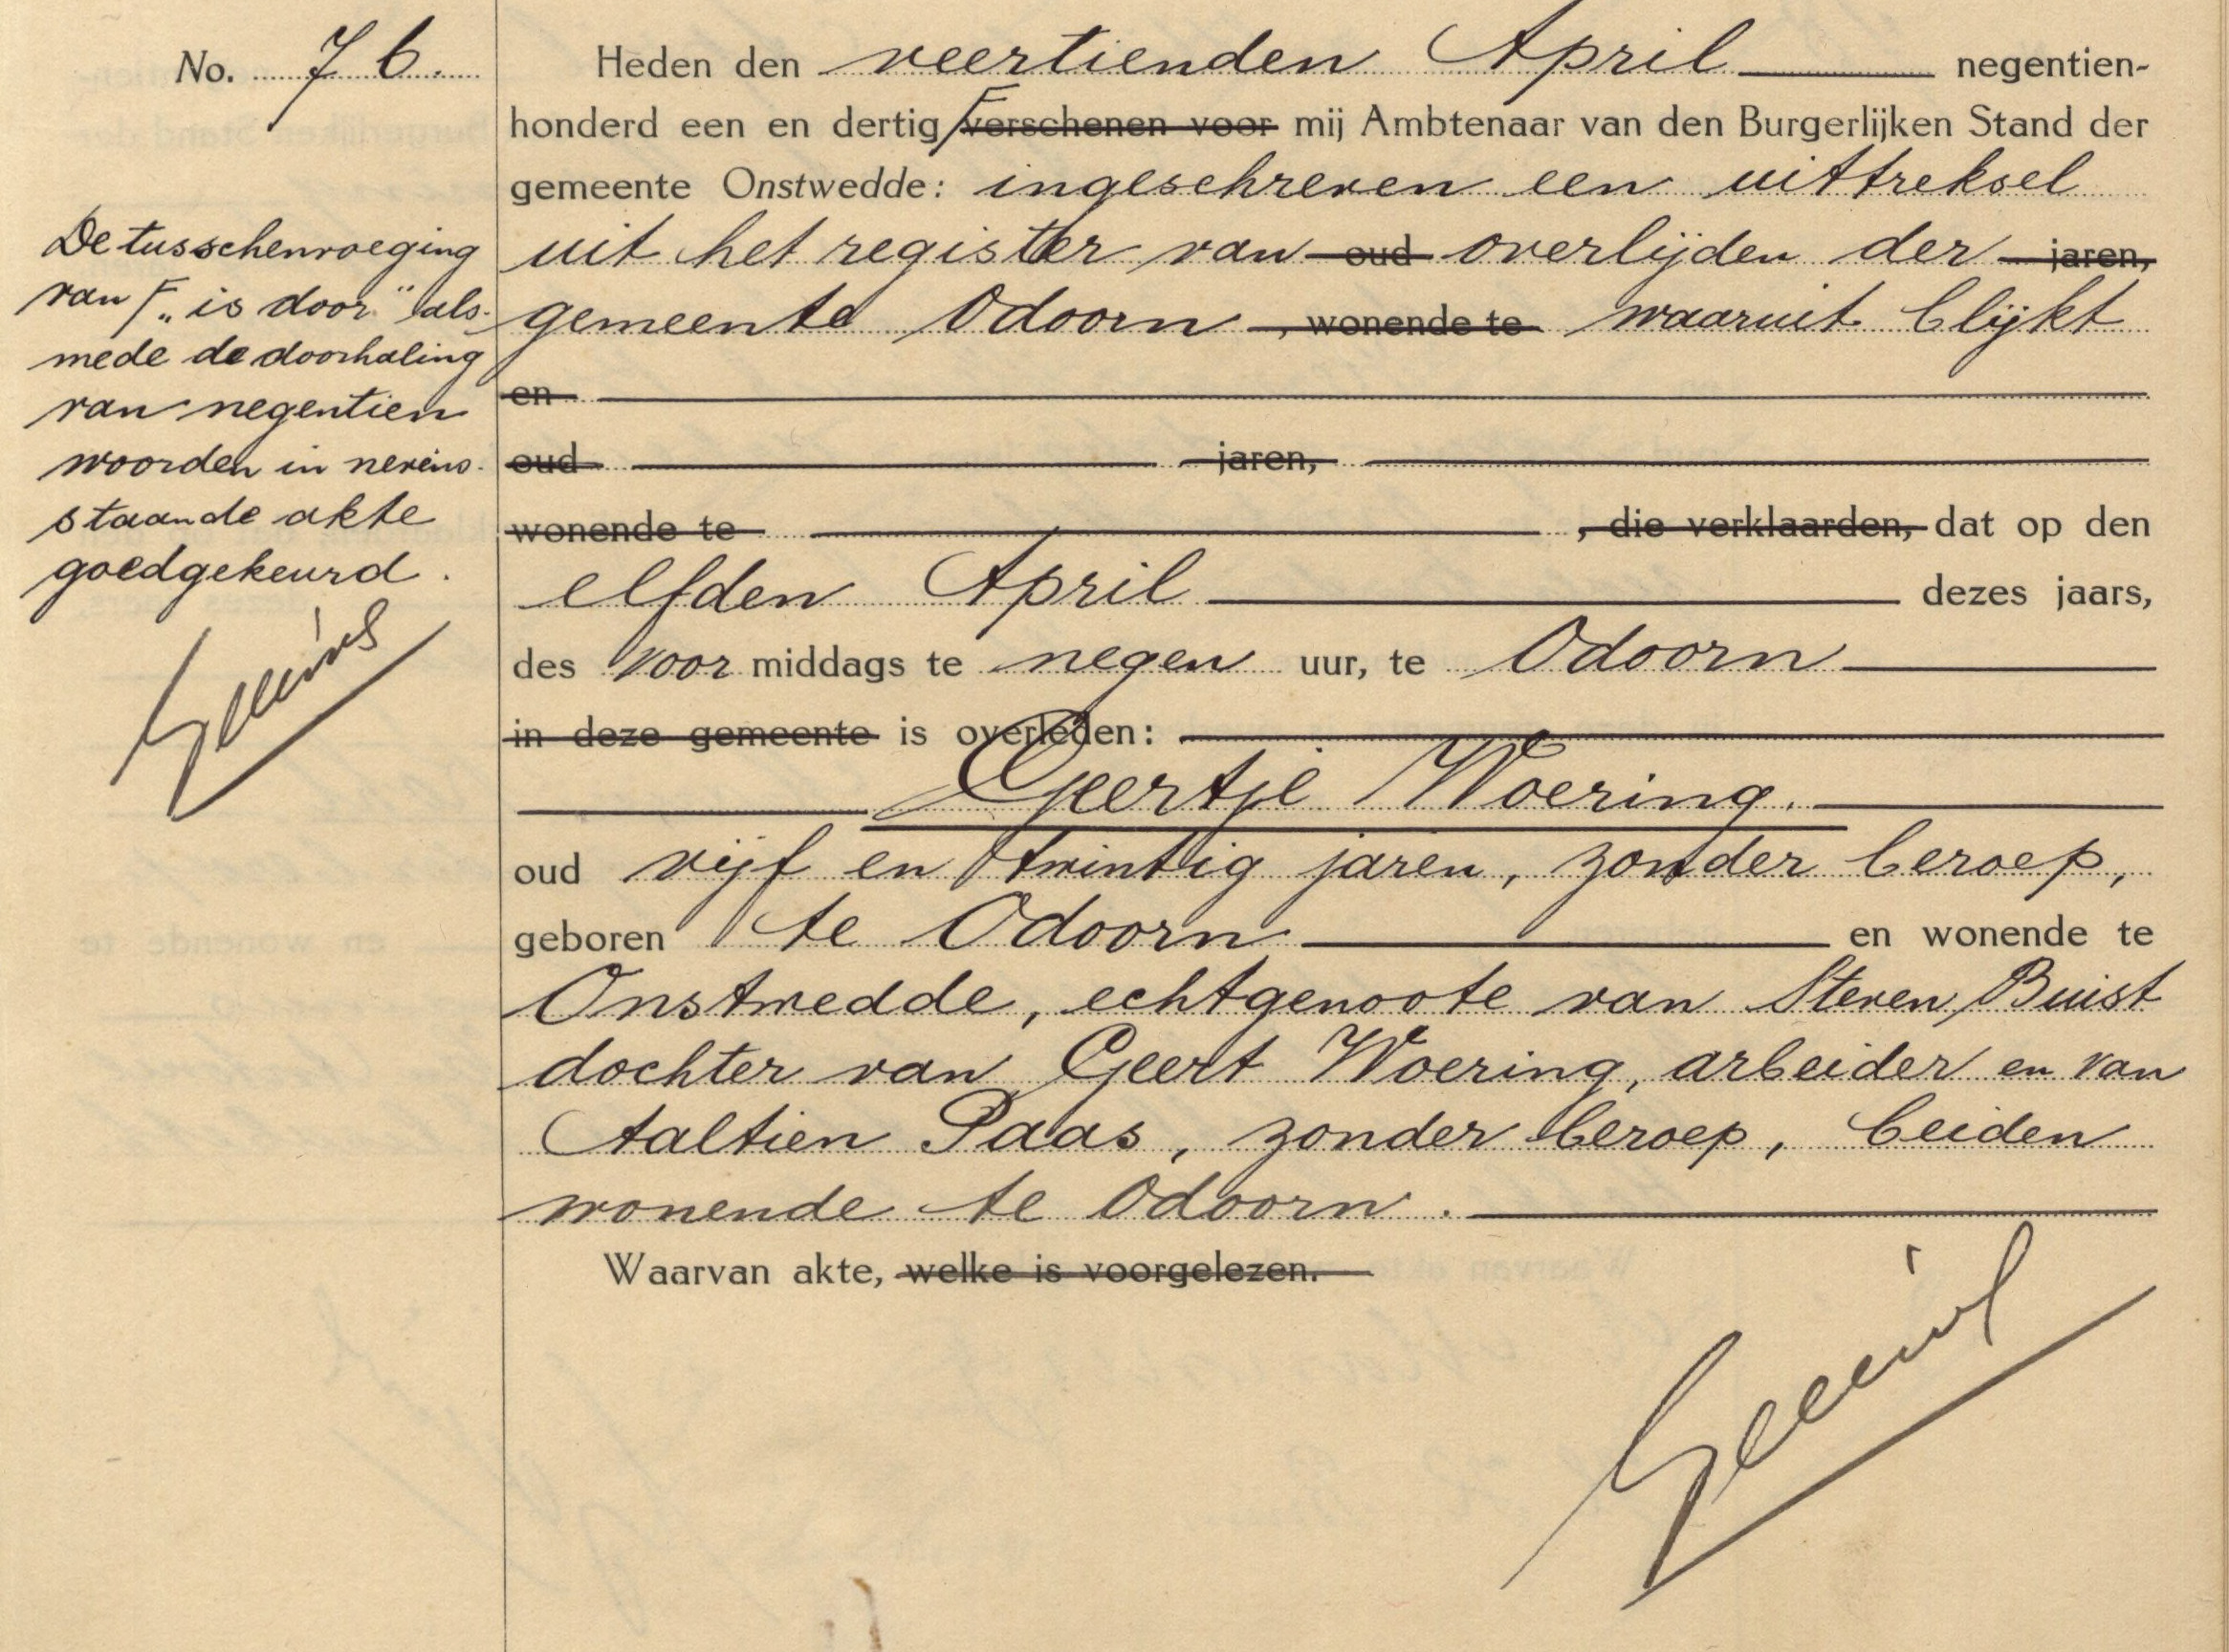 No. 76.
Heden den veertienden April negentien-
honderd een en dertig ꟻ verschenen voor mij Ambtenaar van den Burgerlijken Stand der
gemeente Onstwedde: ingeschreven een uittreksel
uit het register van oud overlijden der jaren,
gemeente Odoorn , wonende te waaruit blijkt
en
oud jaren,
wonende te , die verklaarden, dat op den
elfden April dezes jaars,
des voor middags te negen uur, te Odoorn
in deze gemeente is overleden:
Geertje Woering.
oud vijf en twintig jaren, zonder beroep,
geboren te Odoorn en wonende te
Onstwedde, echtgenoote van Steven Buist
dochter van Geert Woering, arbeider en van
Aaltien Paas, zonder beroep, beiden
wonende te Odoorn.
Waarvan akte, welke is voorgelezen.
De tusschenvoeging
van F „is door" als-
mede de doorhaling
van negentien
woorden in nevens-
staande akte
goedgekeurd.